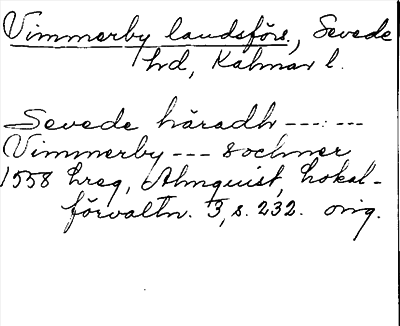 Vimmerby landsförs., Sevede
hd, Kalmar l.
Sevede häradh --- : ---
Vimmerby --- Sochner
1558 hreg, Almquist, Lokal-
förvaltn. 3, s. 232. orig.